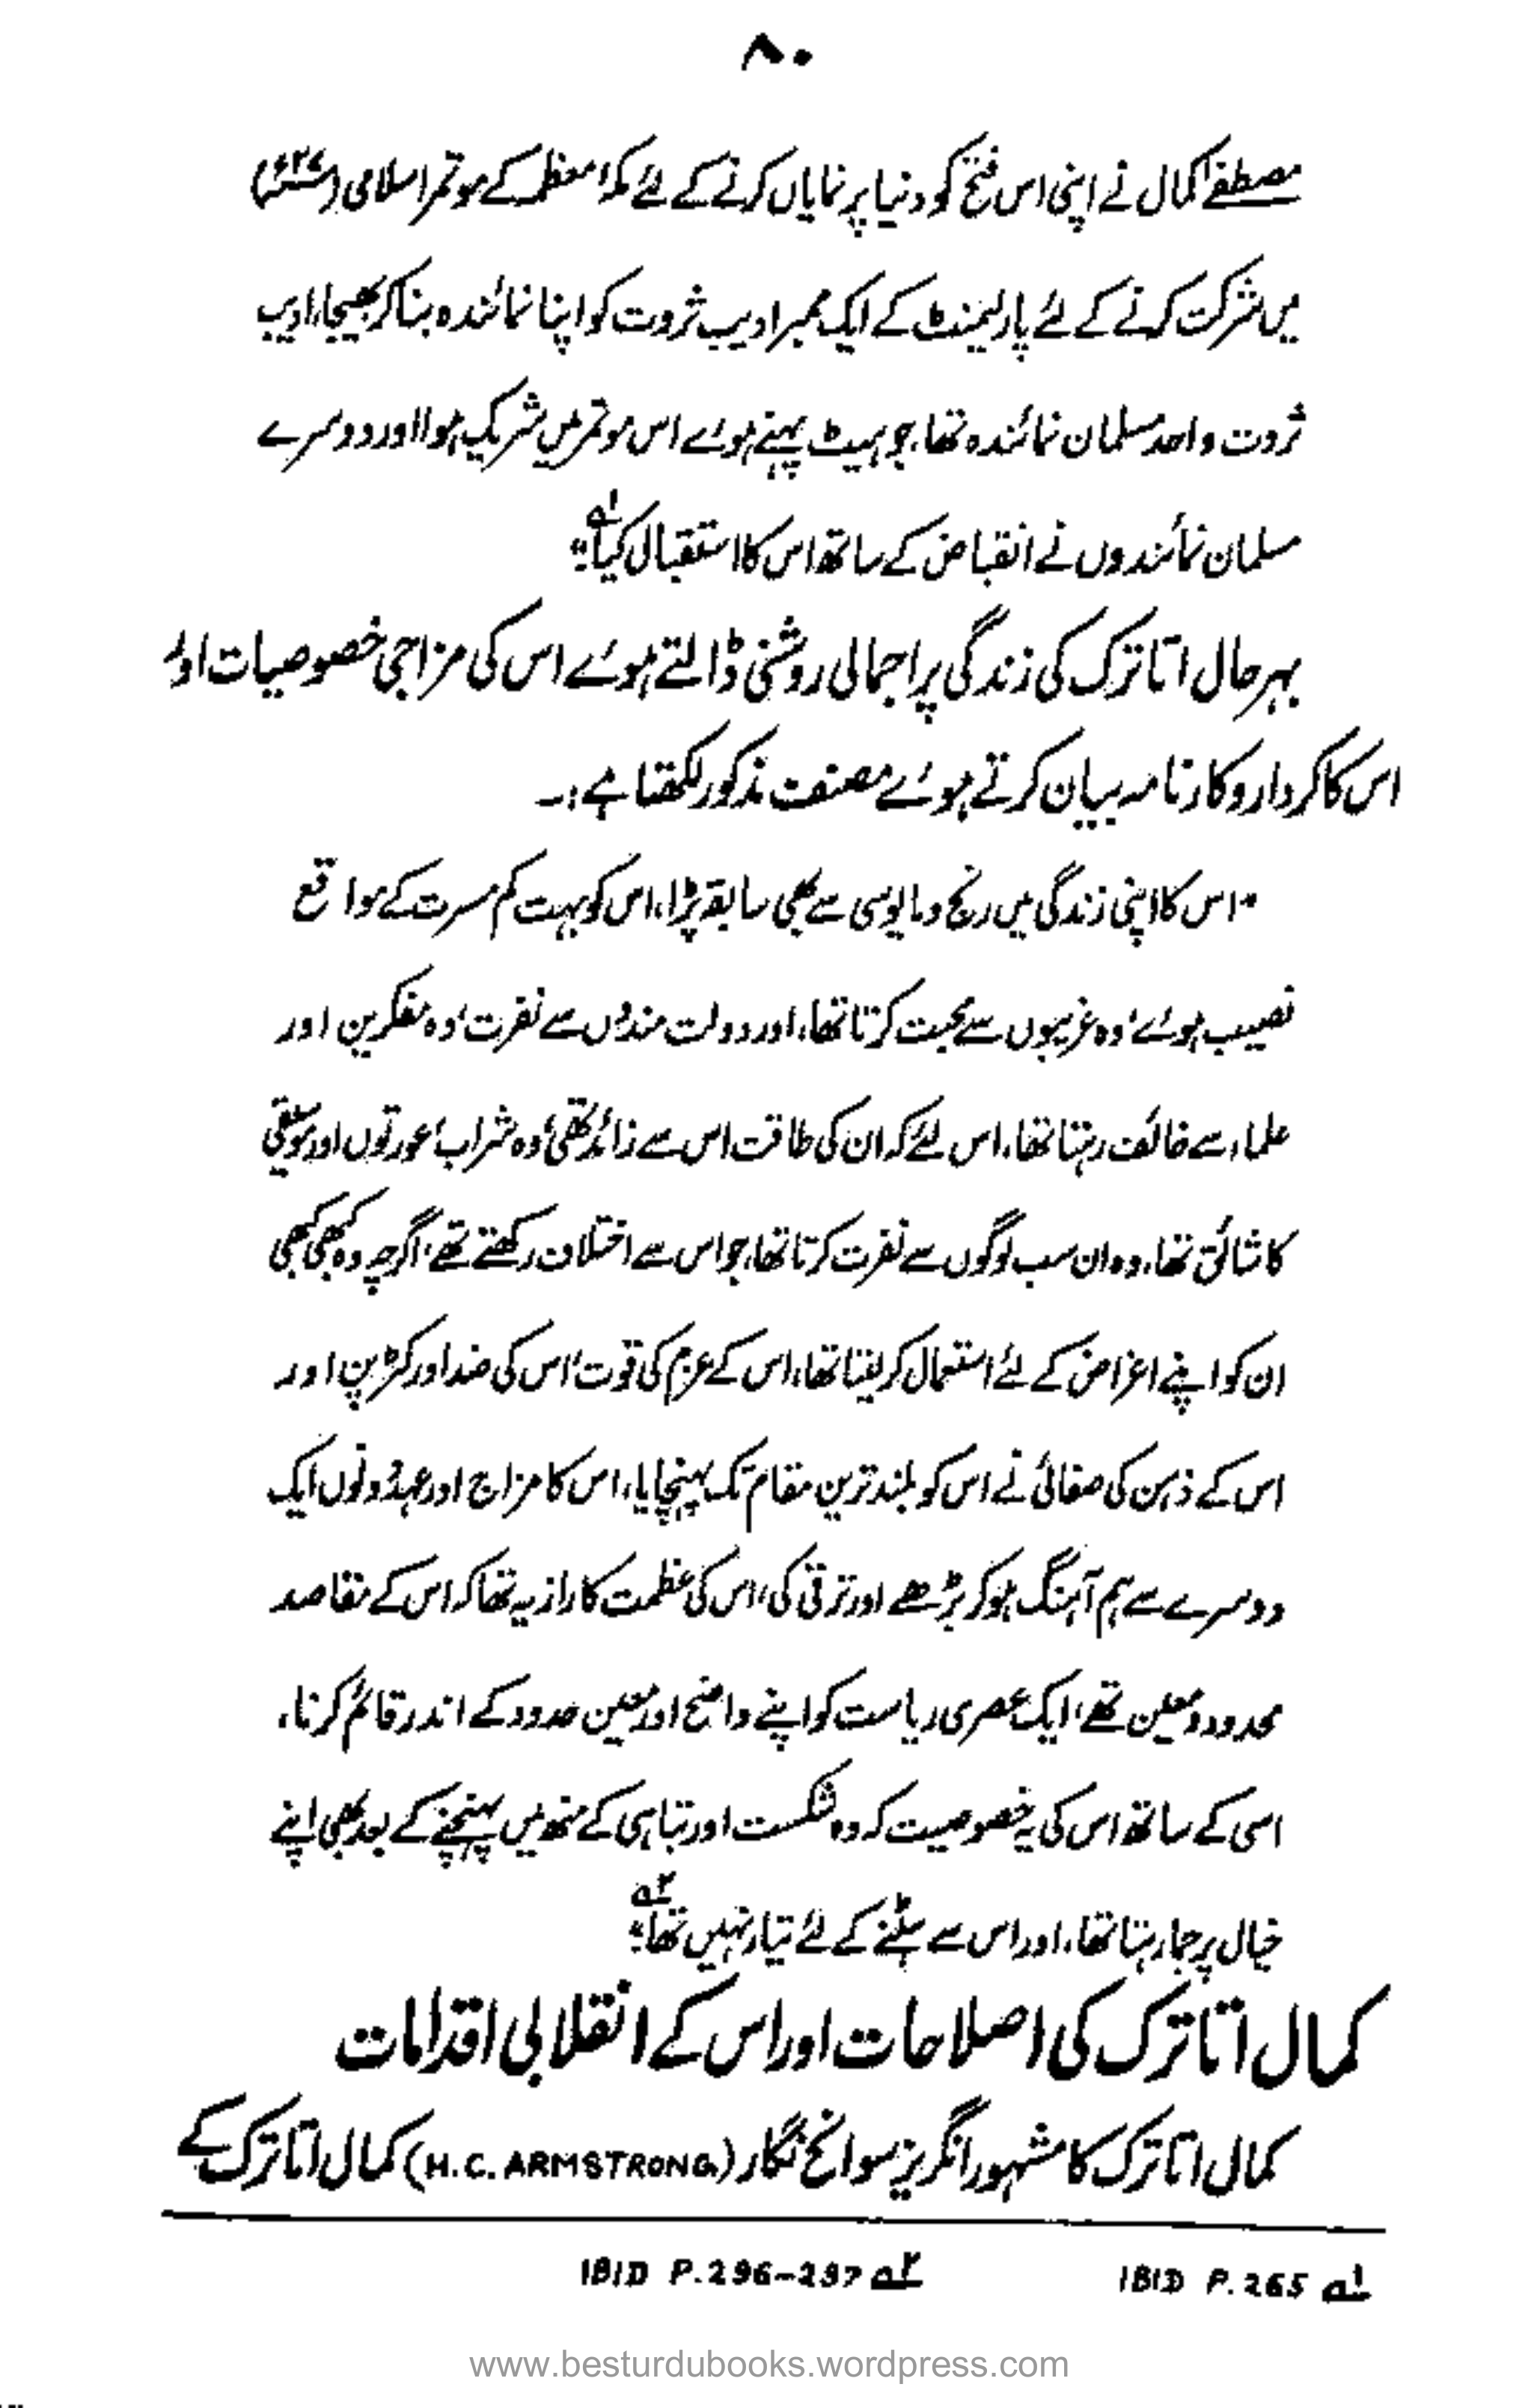 ۸۰
مصطفےٰ کمال نے اپنی اس فتح کو دنیا پر نمایاں کرنے کے لئے مکۂ معظمہ کے موتمر اسلامی
میں شرکت کرنے کے لئے پارلیمنٹ کے ایک ممبر ادیب ثروت کو اپنا نمائندہ بنا کر بھیجا، ادیب
ثروت واحد مسلمان نمائندہ تھا، جو ہیٹ پہنے ہوئے اس موتمر میں شریک ہوا اور دوسرے
مسلمان نمائندوں نے انقباض کے ساتھ اس کا استقبال کیا"۱؎
بہرحال اتاترک کی زندگی پر اجمالی روشنی ڈالتے ہوئے اس کی مزاجی خصوصیات اور
اس کا کردار و کارنامہ بیان کرتے ہوئے مصنف مذکور لکھتا ہے:۔
"اس کا اپنی زندگی میں رنج و مایوسی سے بھی سابقہ پڑا، اس کو بہت کم مسرت کے مواقع
نصیب ہوئے، وہ غریبوں سے محبت کرتا تھا، اور دولت مندوں سے نفرت، وہ مفکرین اور
علماء سے خائف رہتا تھا، اس لئے کہ ان کی طاقت اس سے زائد تھی، وہ شراب، عورتوں اور موسیقی
کا شائق تھا، وہ ان سب لوگوں سے نفرت کرتا تھا، جو اس سے اختلاف رکھتے تھے، اگرچہ وہ کبھی کبھی
ان کو اپنے اغراض کے لئے استعمال کر لیتا تھا، اس کے عزم کی قوت، اس کی ضد اور کٹر پن اور
اس کے ذہن کی صفائی نے اس کو بلند ترین مقام تک پہنچایا، اس کا مزاج اور عہد دونوں ایک
دوسرے سے ہم آہنگ ہو کر بڑھے اور ترقی کی، اس کی عظمت کا راز یہ تھا کہ اس کے مقاصد
محدود و معین تھے، ایک عصری ریاست کو اپنے واضح اور معین حدود کے اندر قائم کرنا،
اسی کے ساتھ اس کی یہ خصوصیت کہ وہ شکست اور تباہی کے منھ میں پہنچنے کے بعد بھی اپنے
خیال پر جما رہتا تھا، اور اس سے ہٹنے کے لئے تیار نہیں تھا"۲؎
کمال اتاترک کی اصلاحات اور اس کے انقلابی اقدامات
کمال اتاترک کا مشہور انگریز سوانح نگار (H.C. ARMSTRONG) کمال اتاترک کے
۱؎ IBID P. 265 ۲؎ IBID P. 296-297
www.besturdubooks.wordpress.com